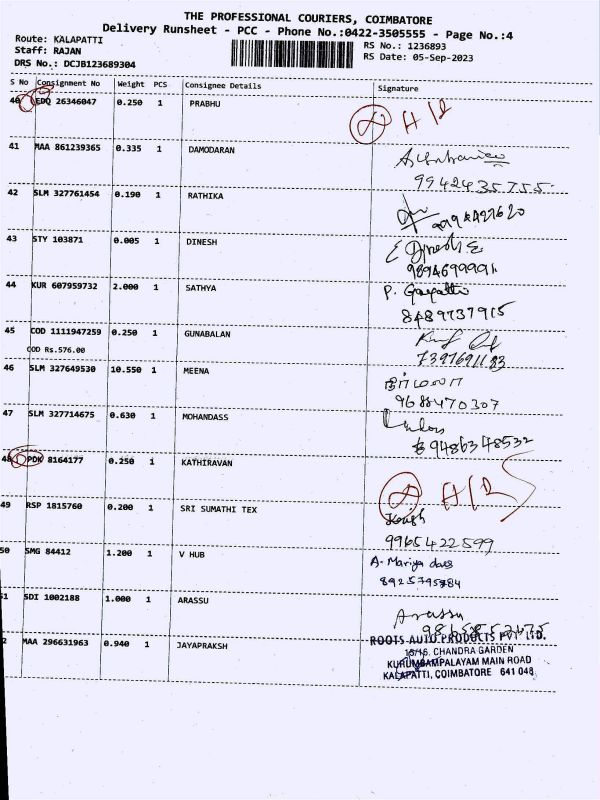 THE PROFESSIONAL COURIERS, COIMBATORE
Delivery Runsheet - PCC - Phone No.:0422-3505555 - Page No.:4
Route: KALAPATTI RS No.: 1236893
Staff: RAJAN RS Date: 05-Sep-2023
DRS No.: DCJB123689304
S No Consignment No Weight PCS Consignee Details Signature
40 EDQ 26346047 0.250 1 PRABHU
41 MAA 861239365 0.335 1 DAMODARAN
9942435755
42 SLM 327761454 0.190 1 RATHIKA
43 STY 103871 0.005 1 DINESH Dinesh
44 KUR 607959732 2.000 1 SATHYA P. Gayathri
8489737915
45 COD 1111947259 0.250 1 GUNABALAN
COD Rs.576.00 7397691183
46 SLM 327649530 10.550 1 MEENA நிர்மலா
9688470307
47 SLM 327714675 0.630 1 MOHANDASS
9486348532
48 PDK 8164177 0.250 1 KATHIRAVAN
49 RSP 1815760 0.200 1 SRI SUMATHI TEX
9965422599
50 SMG 84412 1.200 1 V HUB A. Mariya dass
8925795784
51 SDI 1002188 1.000 1 ARASSU Arassu
ROOTS AUTO PRODUCTS PVT LTD.
52 MAA 296631963 0.940 1 JAYAPRAKSH
CHANDRA GARDEN
KURUMBAMPALAYAM MAIN ROAD
KALAPATTI, COIMBATORE 641 048